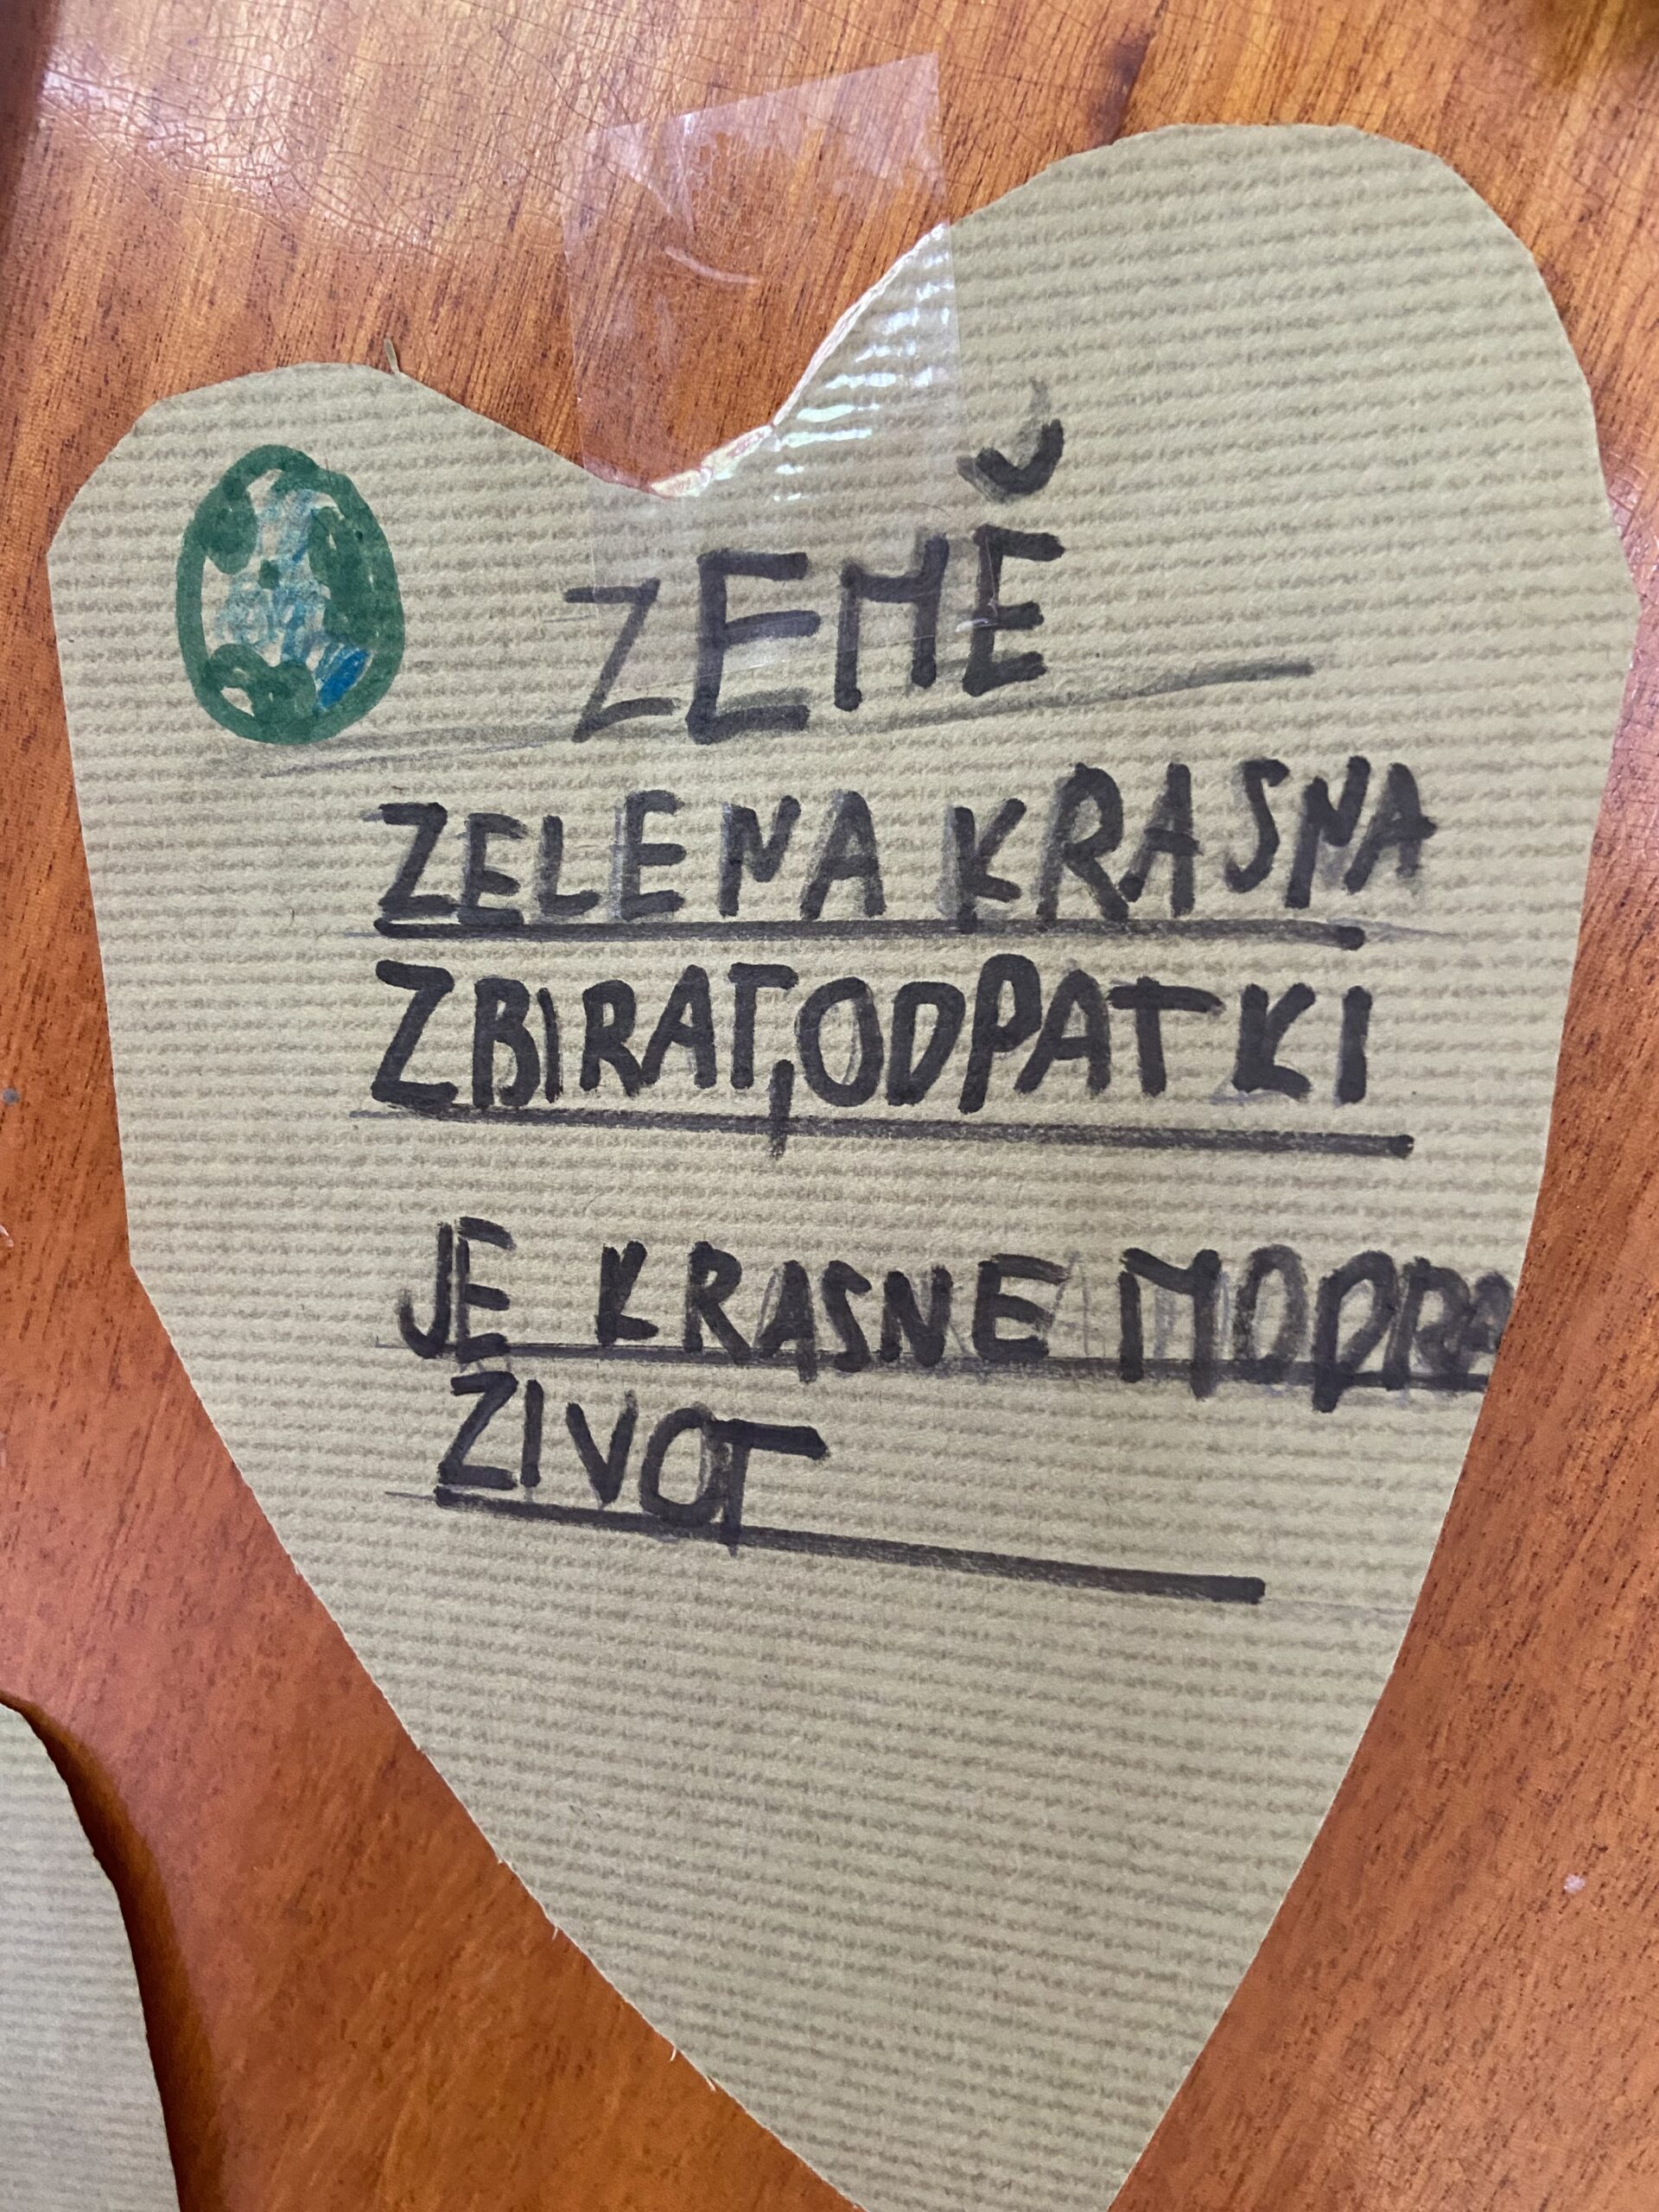 ZEMĚ
ZELENA KRASNA
ZBIRAT,ODPATKI
JE KRASNE MODRA
ZIVOT